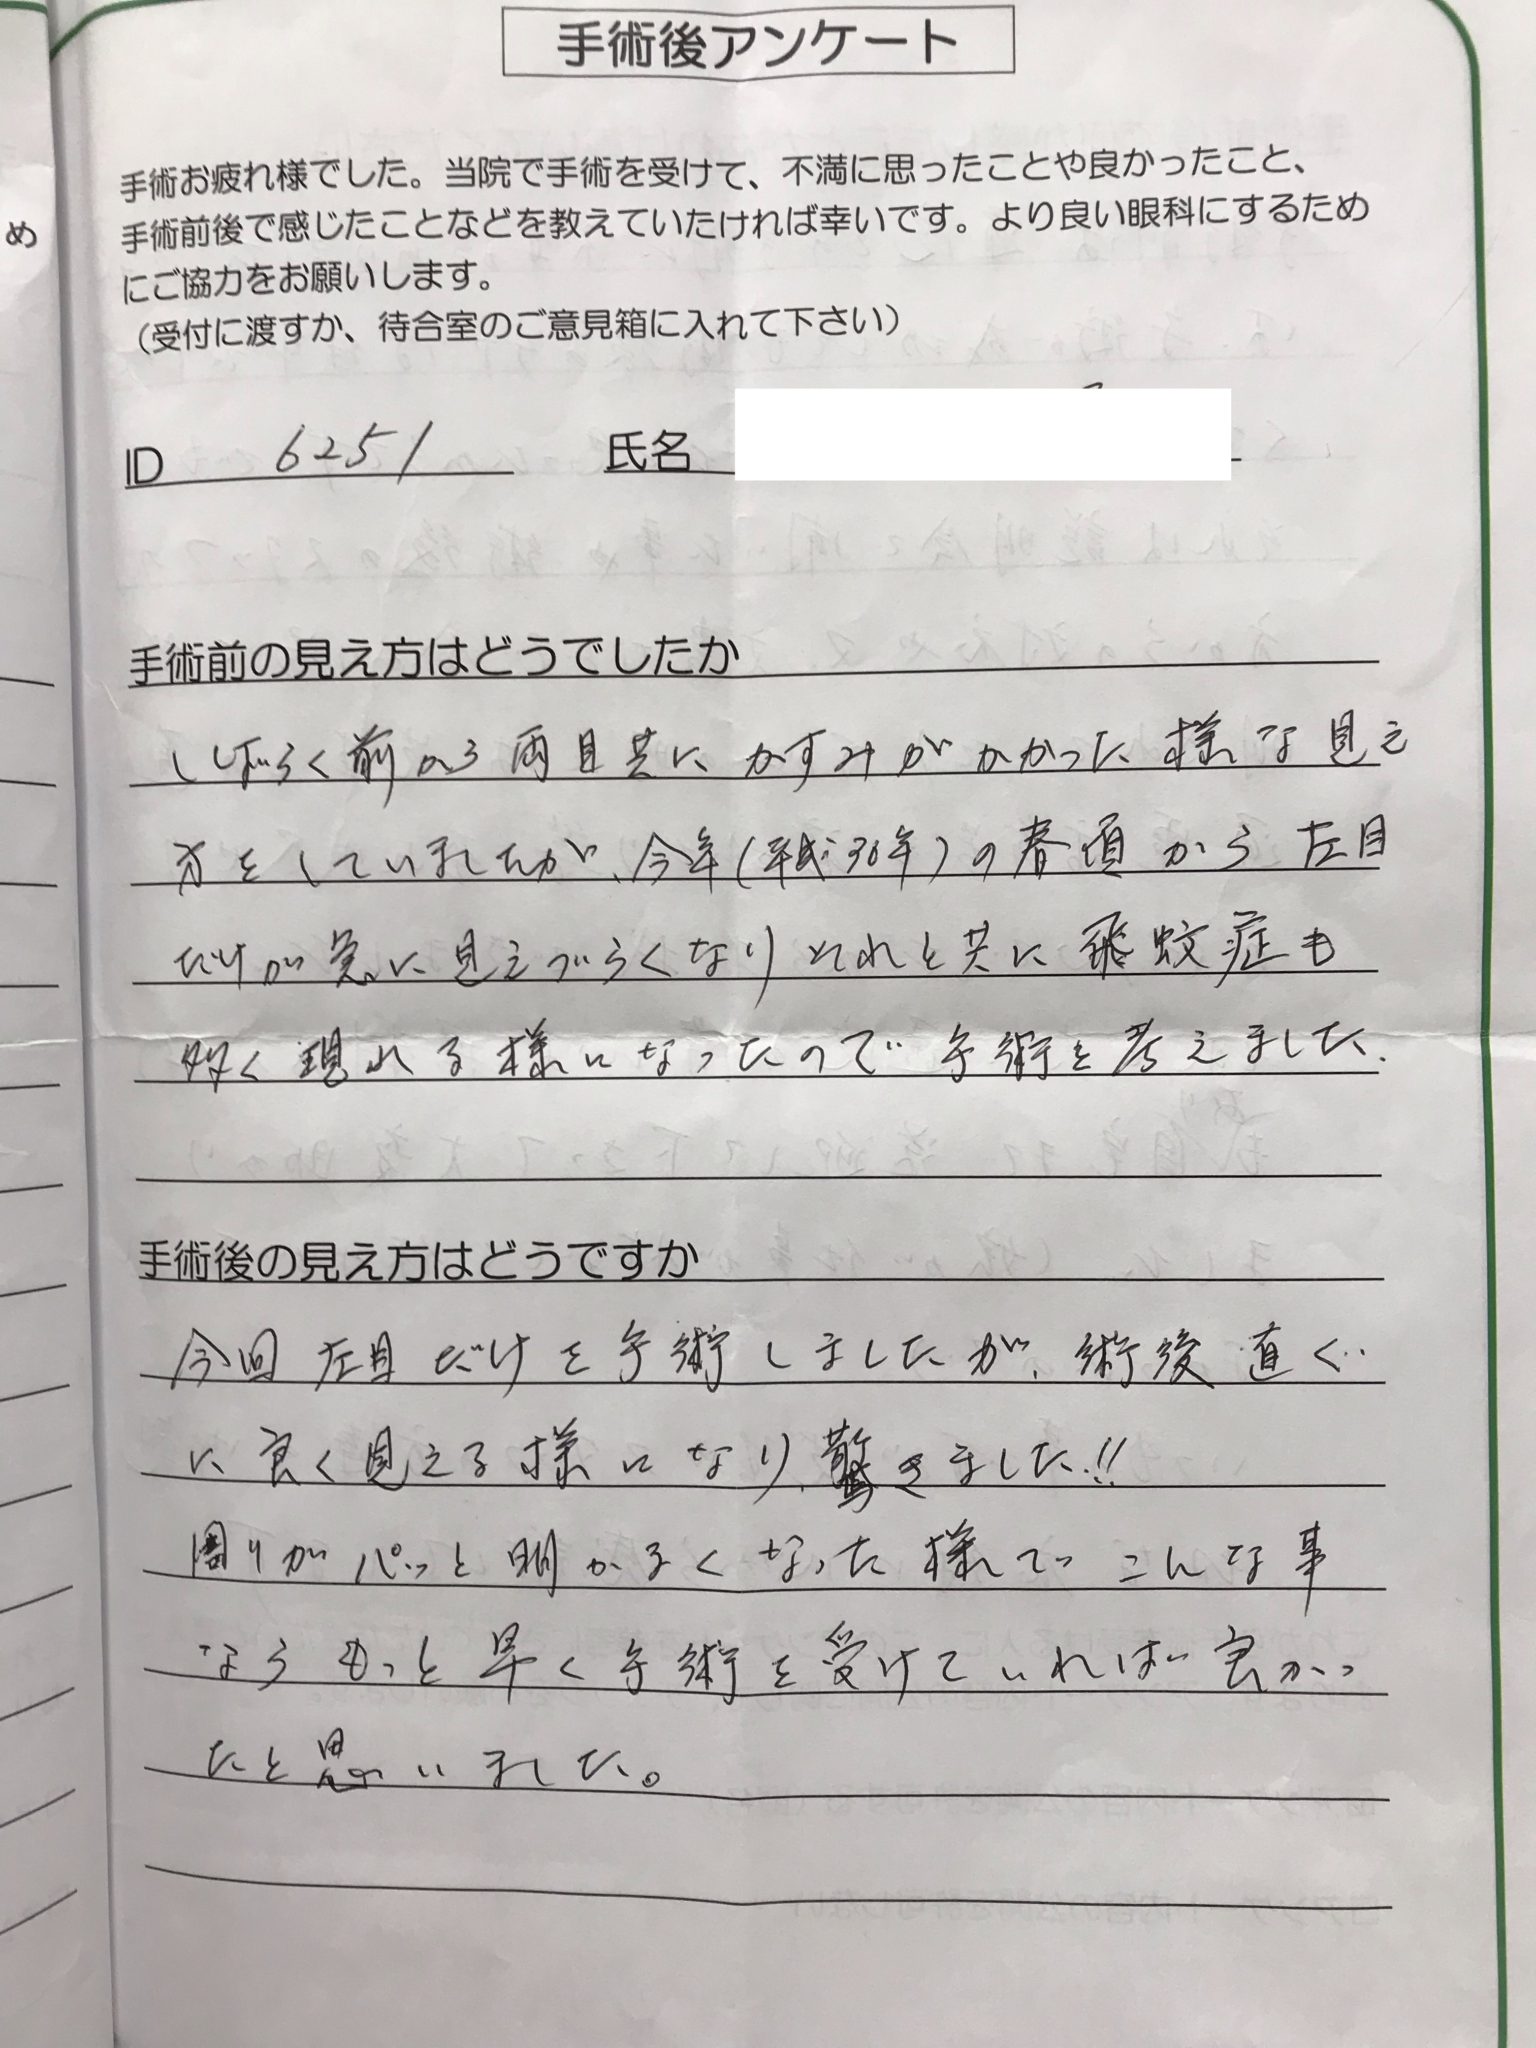 手術後アンケート
手術お疲れ様でした。当院で手術を受けて、不満に思ったことや良かったこと、
手術前後で感じたことなどを教えていたければ幸いです。より良い眼科にするため
にご協力をお願いします。
（受付に渡すか、待合室のご意見箱に入れて下さい）
ID 6251 氏名
手術前の見え方はどうでしたか
しばらく前から両目共にかすみがかかった様な見え
方をしていましたが、今年(平成30年)の春頃から左目
だけが急に見えづらくなりそれと共に飛蚊症も
多く現れる様になったので手術を考えました.
手術後の見え方はどうですか
今回左目だけを手術しましたが、術後直ぐ
に良く見える様になり、驚きました!!
周りがパッと明かるくなった様で こんな事
ならもっと早く手術を受けていれば良かっ
たと思いました。
め